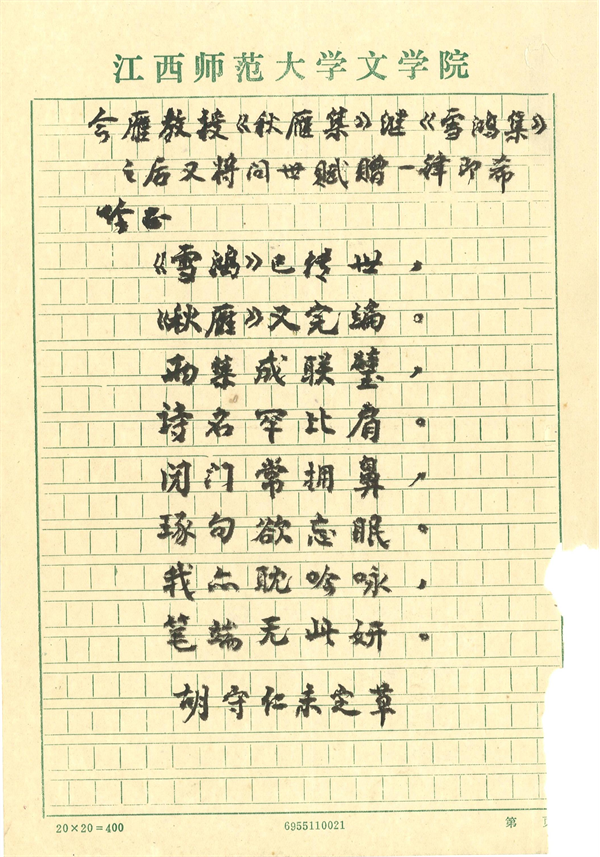 江西师范大学文学院
今雁教授《秋雁集》继《雪鸿集》
之后又将问世赋赠一律即希
吟正
《雪鸿》已传世，
《秋雁》又完编。
两集成联璧，
诗名罕比肩。
闭门常拥鼻，
琢句欲忘眠。
我亦耽吟咏，
笔端无此妍。
胡守仁未定草
20×20=400
6955110021
第 页